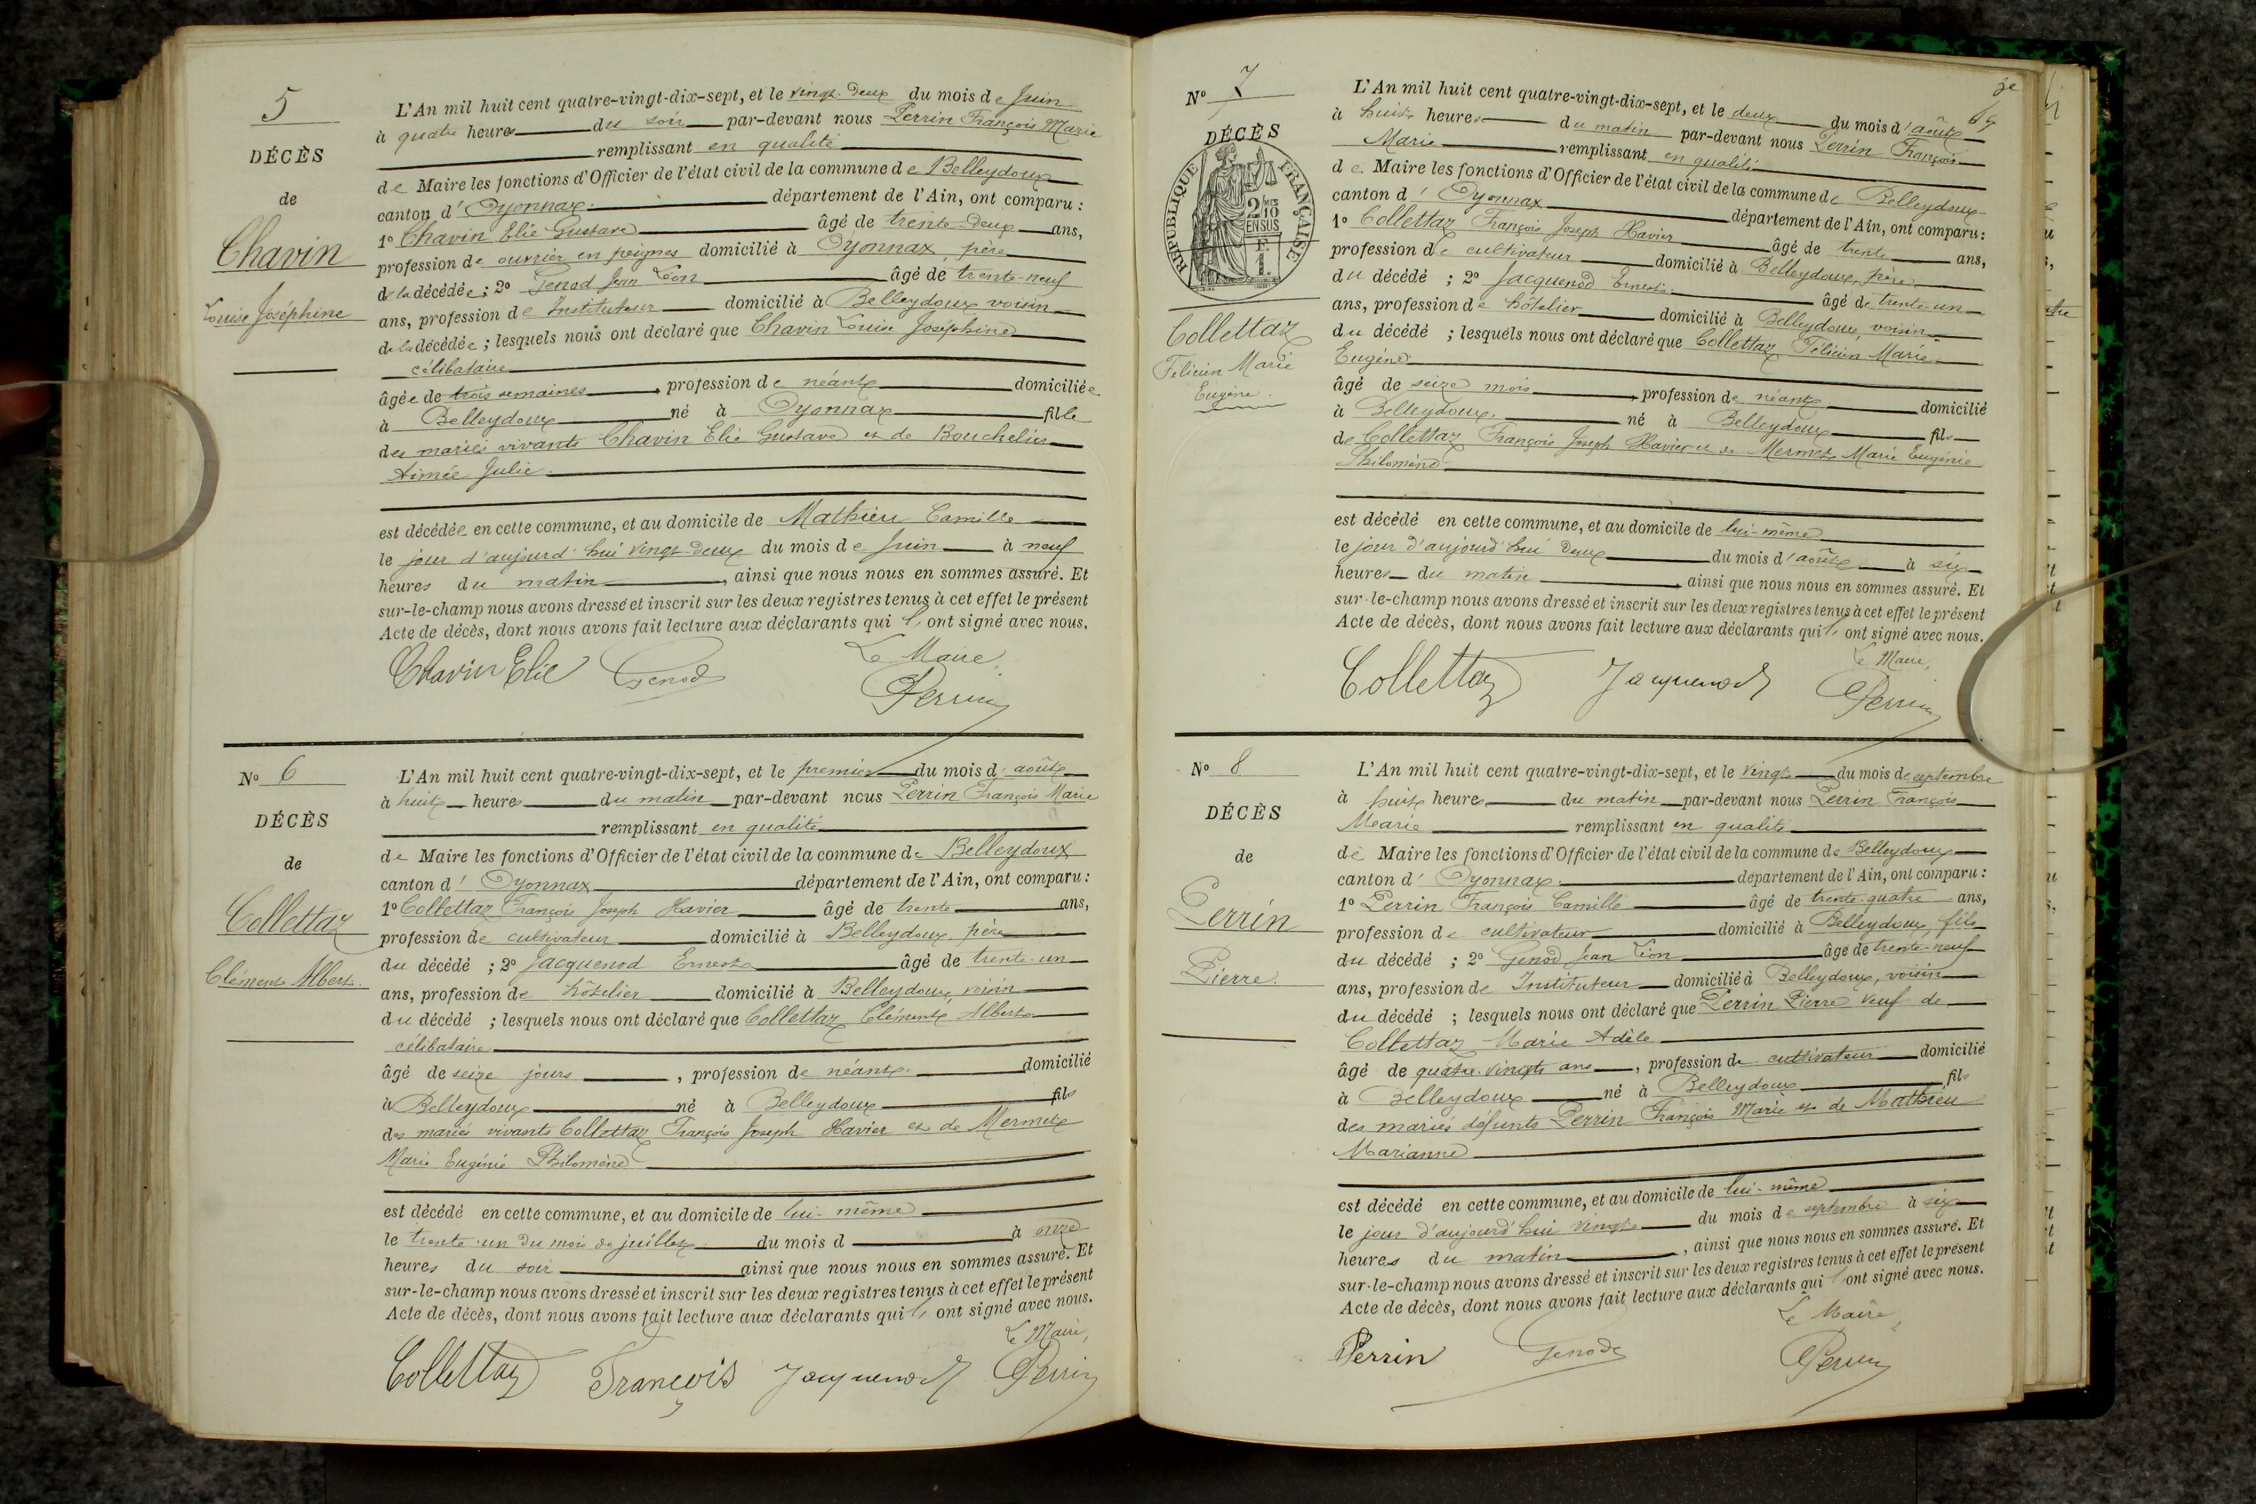 5
DÉCÈS
de
Chavin
Louise Joséphine
L'An mil huit cent quatre-vingt-dix-sept, et le vingt-deux du mois de Juin
à quatre heures du soir par-devant nous Perrin François Marie
remplissant en qualité
de Maire les fonctions d'Officier de l'état civil de la commune de Belleydoux
canton d'Oyonnax département de l'Ain, ont comparu :
1º Chavin Elie Gustave âgé de trente-deux ans,
profession de ouvrier en peignes domicilié à Oyonnax, père
de la décédée ; 2º Genod Jean Léon âgé de trente-neuf
ans, profession de Instituteur domicilié à Belleydoux voisin
de la décédée ; lesquels nous ont déclaré que Chavin Louise Joséphine
célibataire
âgée de trois semaines, profession de néant domiciliée
à Belleydoux né à Oyonnax fille
des mariés vivants Chavin Elie Gustave et de Bouchelier
Aimée Julie
est décédée en cette commune, et au domicile de Mathieu Camille
le jour d'aujourd'hui vingt-deux du mois de Juin à neuf
heures du matin, ainsi que nous nous en sommes assuré. Et
sur-le-champ nous avons dressé et inscrit sur les deux registres tenus à cet effet le présent
Acte de décès, dont nous avons fait lecture aux déclarants qui ont signé avec nous.
Le Maire,
Chavin Elie Genod Perrin
Nº 6
DÉCÈS
de
Collettaz
Clément Albert
L'An mil huit cent quatre-vingt-dix-sept, et le premier du mois d'août
à huit heures du matin par-devant nous Perrin François Marie
remplissant en qualité
de Maire les fonctions d'Officier de l'état civil de la commune de Belleydoux
canton d'Oyonnax département de l'Ain, ont comparu :
1º Collettaz François Joseph Xavier âgé de trente ans,
profession de cultivateur domicilié à Belleydoux, père
du décédé ; 2º Jacquenod Ernest âgé de trente-un
ans, profession de hôtelier domicilié à Belleydoux, voisin
du décédé ; lesquels nous ont déclaré que Collettaz Clément Albert
célibataire
âgé de seize jours, profession de néant domicilié
à Belleydoux né à Belleydoux fils
des mariés vivants Collettaz François Joseph Xavier et de Mermet
Marie Eugénie Philomène
est décédé en cette commune, et au domicile de lui-même
le trente-un du mois de juillet du mois d à onze
heures du soir ainsi que nous nous en sommes assuré. Et
sur-le-champ nous avons dressé et inscrit sur les deux registres tenus à cet effet le présent
Acte de décès, dont nous avons fait lecture aux déclarants qui ont signé avec nous.
Le Maire,
Collettaz François Jacquenod Perrin
69
Nº 7
DÉCÈS
RÉPUBLIQUE FRANÇAISE
2/10 EN SUS
Collettaz
Félicien Marie
Eugène
L'An mil huit cent quatre-vingt-dix-sept, et le deux du mois d'août
à huit heures du matin par-devant nous Perrin François
Marie remplissant en qualité
de Maire les fonctions d'Officier de l'état civil de la commune de Belleydoux
canton d'Oyonnax département de l'Ain, ont comparu :
1º Collettaz François Joseph Xavier âgé de trente ans,
profession de cultivateur domicilié à Belleydoux, père
du décédé ; 2º Jacquenod Ernest âgé de trente-un
ans, profession de hôtelier domicilié à Belleydoux, voisin
du décédé ; lesquels nous ont déclaré que Collettaz Félicien Marie
Eugène
âgé de seize mois, profession de néant domicilié
à Belleydoux né à Belleydoux fils
de Collettaz François Joseph Xavier et de Mermet Marie Eugénie
Philomène
est décédé en cette commune, et au domicile de lui-même
le jour d'aujourd'hui deux du mois d'août à six
heures du matin, ainsi que nous nous en sommes assuré. Et
sur-le-champ nous avons dressé et inscrit sur les deux registres tenus à cet effet le présent
Acte de décès, dont nous avons fait lecture aux déclarants qui ont signé avec nous.
Le Maire,
Collettaz Jacquenod Perrin
Nº 8
DÉCÈS
de
Perrin
Pierre
L'An mil huit cent quatre-vingt-dix-sept, et le vingt du mois de septembre
à huit heures du matin par-devant nous Perrin François
Marie remplissant en qualité
de Maire les fonctions d'Officier de l'état civil de la commune de Belleydoux
canton d'Oyonnax département de l'Ain, ont comparu :
1º Perrin François Camille âgé de trente-quatre ans,
profession de cultivateur domicilié à Belleydoux, fils
du décédé ; 2º Genod Jean Léon âgé de trente-neuf
ans, profession de Instituteur domicilié à Belleydoux, voisin
du décédé ; lesquels nous ont déclaré que Perrin Pierre veuf de
Collettaz Marie Adèle
âgé de quatre-vingts ans, profession de cultivateur domicilié
à Belleydoux né à Belleydoux fils
des mariés défunts Perrin François Marie et de Mathieu
Marianne
est décédé en cette commune, et au domicile de lui-même
le jour d'aujourd'hui vingt du mois de septembre à six
heures du matin, ainsi que nous nous en sommes assuré. Et
sur-le-champ nous avons dressé et inscrit sur les deux registres tenus à cet effet le présent
Acte de décès, dont nous avons fait lecture aux déclarants qui ont signé avec nous.
Le Maire,
Perrin Genod Perrin